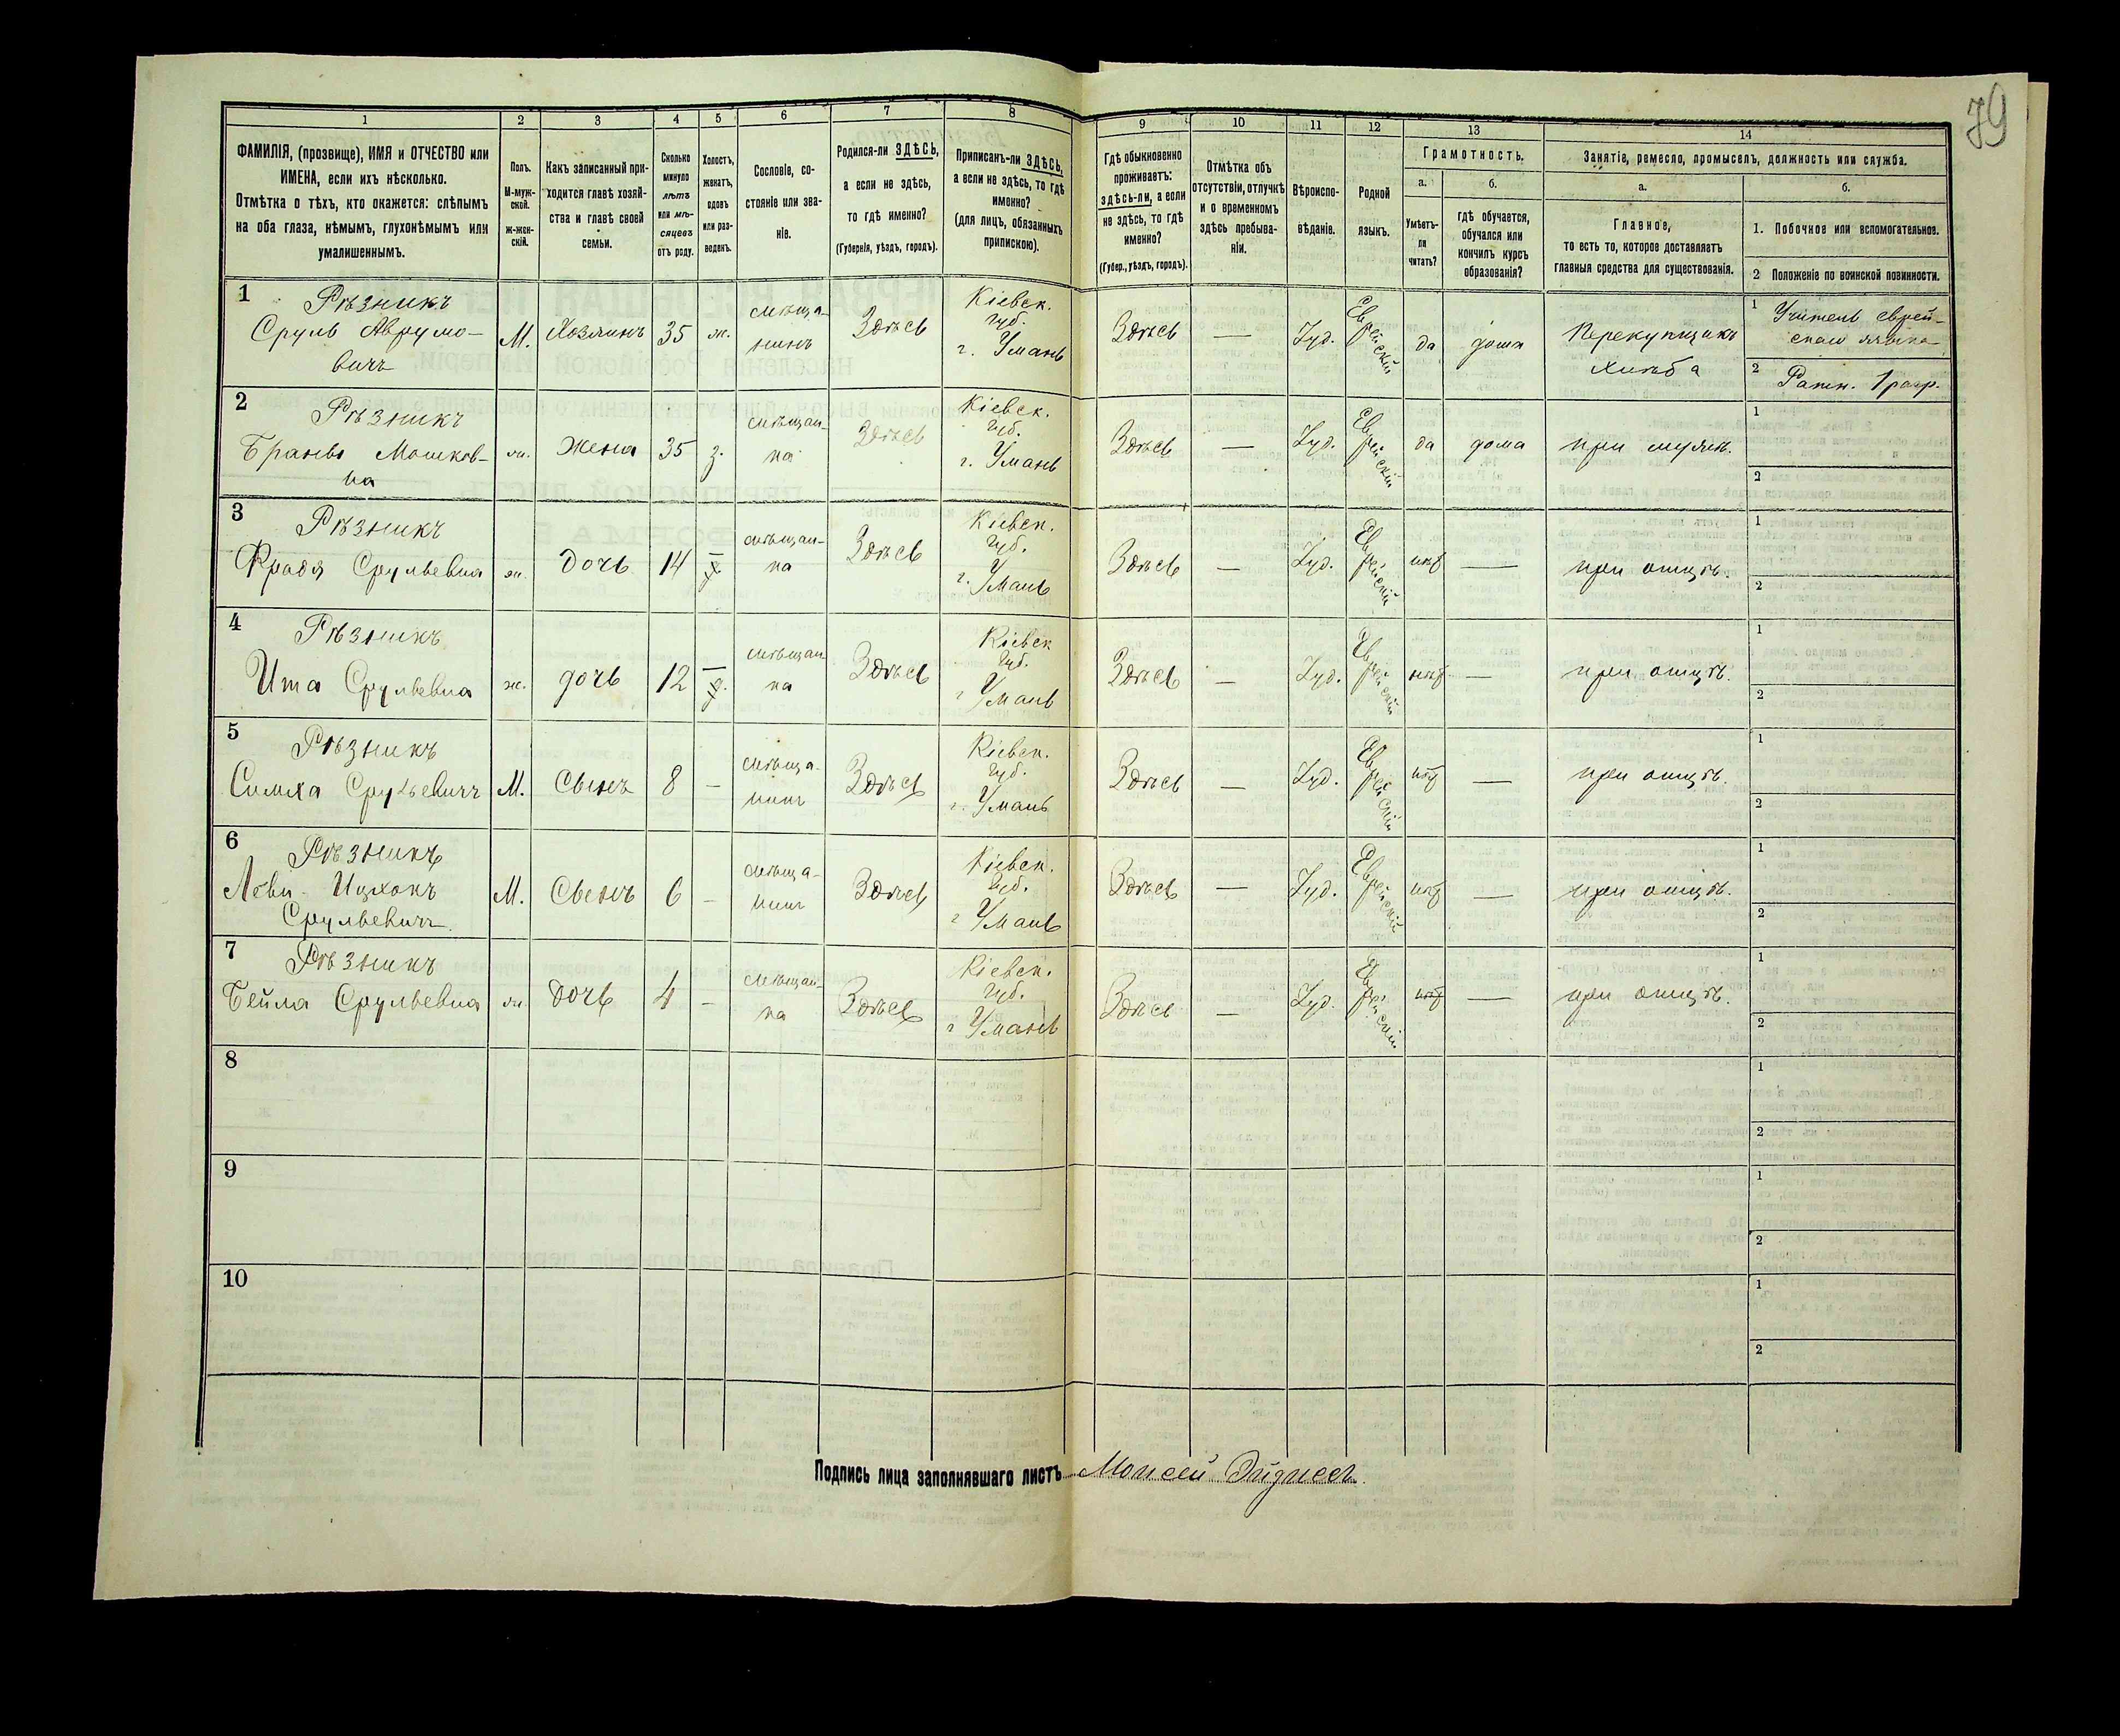 79
1
2
3
4
5
6
7
8
9
10
11
12
13
14
ФАМИЛІЯ, (прозвище), ИМЯ и ОТЧЕСТВО или
ИМЕНА, если ихъ нѣсколько.
Отмѣтка о тѣхъ, кто окажется: слѣпымъ
на оба глаза, нѣмымъ, глухонѣмымъ или
умалишеннымъ.
Полъ.
М-муж-
ской.
ж-жен-
скій.
Какъ записанный при-
ходится главѣ хозяй-
ства и главѣ своей
семьи.
Сколько
минуло
лѣтъ
или мѣ-
сяцевъ
отъ роду.
Холостъ,
женатъ,
вдовъ
или раз-
веденъ.
Сословіе, со-
стояніе или зва-
ніе.
Родился-ли ЗДѢСЬ,
а если не здѣсь,
то гдѣ именно?
(Губернія, уѣздъ, городъ).
Приписанъ-ли ЗДѢСЬ,
а если не здѣсь, то гдѣ
именно?
(для лицъ, обязанныхъ
припискою).
Гдѣ обыкновенно
проживаетъ:
здѣсь-ли, а если
не здѣсь, то гдѣ
именно?
(Губер., уѣздъ, городъ).
Отмѣтка объ
отсутствіи, отлучкѣ
и о временномъ
здѣсь пребыва-
ніи.
Вѣроиспо-
вѣданіе.
Родной
языкъ.
Грамотность.
а.
Умѣетъ-
ли
читать?
б.
гдѣ обучается,
обучался или
кончилъ курсъ
образованія?
Занятіе, ремесло, промыселъ, должность или служба.
а.
Главное,
то есть то, которое доставляетъ
главныя средства для существованія.
б.
1. Побочное или вспомогательное.
2 Положеніе по воинской повинности.
1
Рѣзникъ
Сруль Аврумо-
вичъ
М.
Хозяинъ
35
ж.
мѣща-
нинъ
Здѣсь
Кіевск.
губ.
г. Умань
Здѣсь
—
Іуд.
Еврейскій
да
дома
Перекупщикъ
хлѣба
1 Учитель еврей-
скаго языка
2 Ратн. 1 разр.
2
Рѣзникъ
Брана Мошков-
на
ж.
жена
35
з.
мѣщан-
ка
Здѣсь
Кіевск.
губ.
г. Умань
Здѣсь
—
Іуд.
Еврейскій
да
дома
при мужѣ.
1
2
3
Рѣзникъ
Фрадя Срульевна
ж.
дочь
14
—
мѣщан-
ка
Здѣсь
Кіевск.
губ.
г. Умань
Здѣсь
—
Іуд.
Еврейскій
нѣт
—
при отцѣ.
1
2
4
Рѣзникъ
Ита Срульевна
ж.
дочь
12
—
мѣщан-
ка
Здѣсь
Кіевск
губ.
г Умань
Здѣсь
—
Іуд.
Еврейскій
нѣт
—
при отцѣ.
1
2
5
Рѣзникъ
Симха Срульевичъ
М.
Сынъ
8
—
мѣща-
нинъ
Здѣсь
Кіевск.
губ.
г. Умань
Здѣсь
—
Іуд.
Еврейскій
нѣт
—
при отцѣ.
1
2
6
Рѣзникъ
Леви-Ицхокъ
Срульевичъ
М.
Сынъ
6
—
мѣща-
нинъ
Здѣсь
Кіевск.
губ.
г Умань
Здѣсь
—
Іуд.
Еврейскій
нѣт
—
при отцѣ.
1
2
7
Рѣзникъ
Бейла Срульевна
ж.
дочь
4
—
мѣщан-
ка
Здѣсь
Кіевск.
губ.
г Умань
Здѣсь
—
Іуд.
Еврейскій
нѣт
—
при отцѣ.
1
2
8
1
2
9
1
2
10
1
2
Подпись лица заполнявшаго листъ Моисей